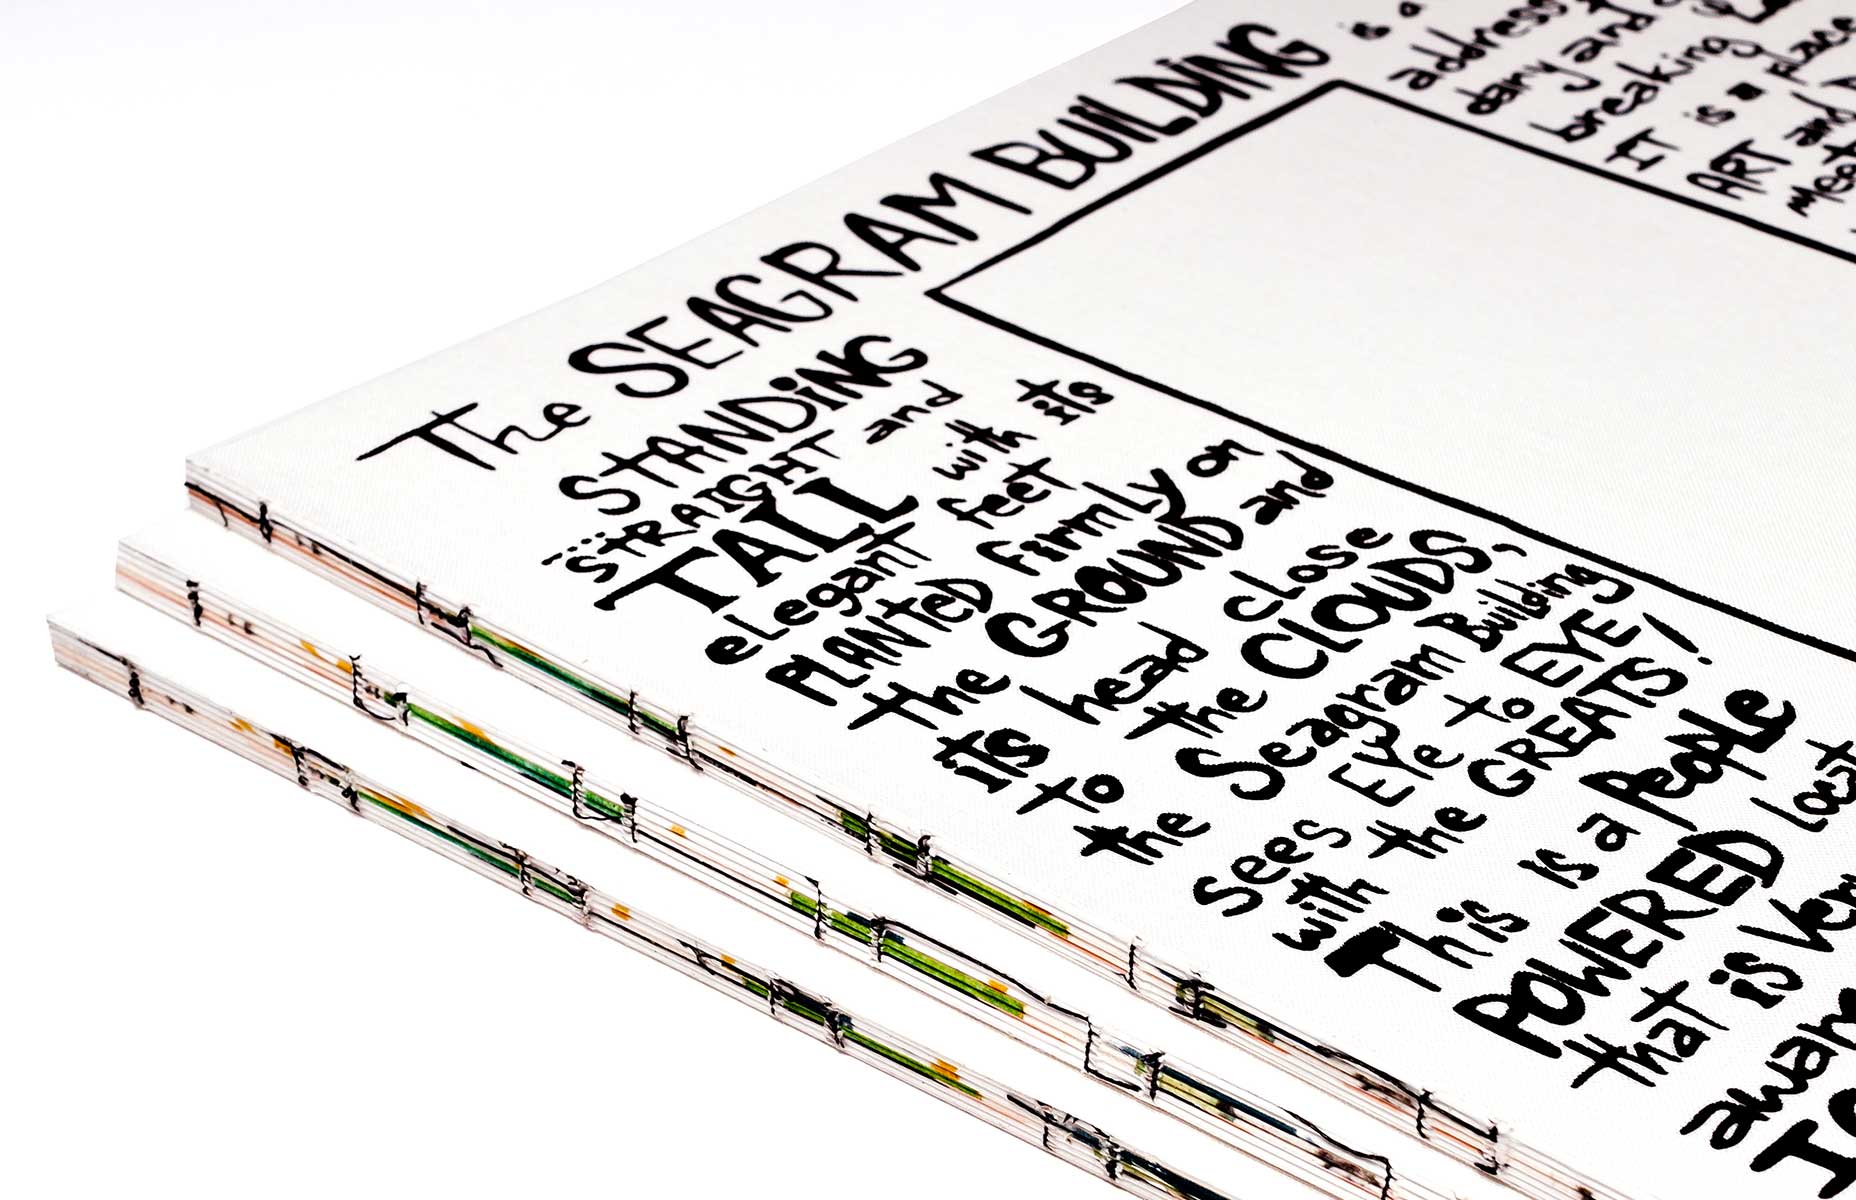 The SEAGRAM BUILDING
is a
address
dary and
breaking
IT is a PLACE
ART and
meet
STANDiNG
STRAIGHT and
TALL with its
eLegant feet
PLANTeD Firmly on
the GROUND and
its head close
to the CLOUDS,
the Seagram Building
sees EYe to EYE
with the GREATS!
This is a PeoPLe
POWERED
that is
aware